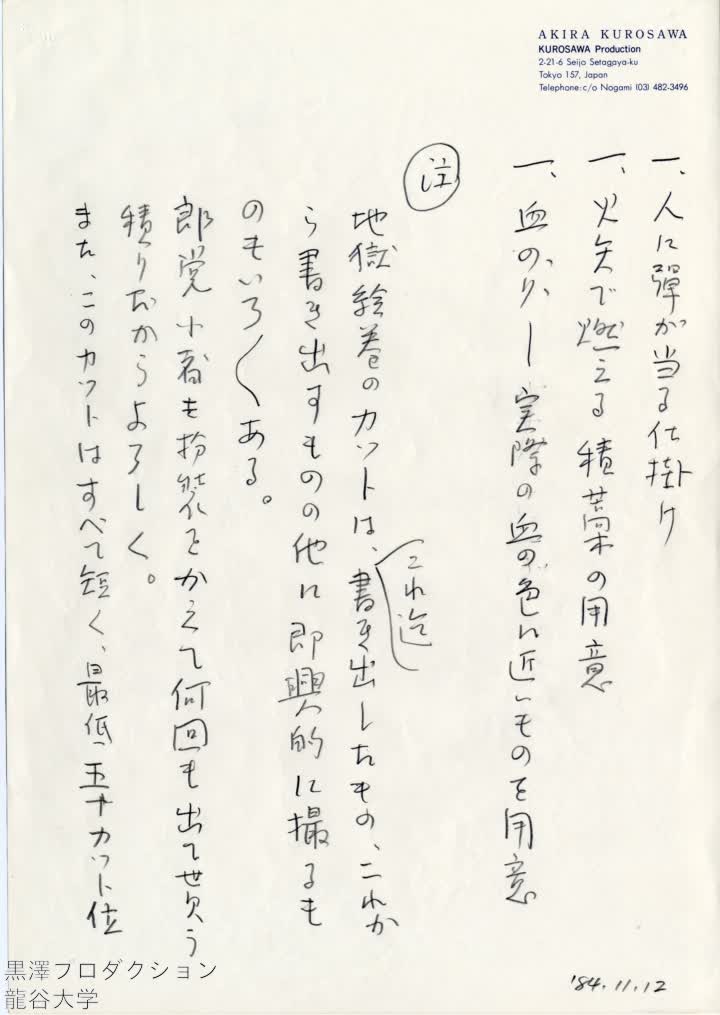 AKIRA KUROSAWA
KUROSAWA Production
2-21-6 Seijo Setagaya-ku
Tokyo 157, Japan
Telephone: c/o Nogami (03) 482-3496
一、人に彈が当る仕掛け
一、火矢で燃える積藁の用意
一、血のり、ー実際の血の色に近いものを用意
注
地獄絵巻のカットは、これ迄書き出したもの、これか
ら書き出すものの他に即興的に撮るも
のもいろ〱ある。
郎党小者も扮装をかえて何回も出て貰う
積りだからよろしく。
また、このカットはすべて短く、最低、五十カット位
'84.11.12
黒澤プロダクション
龍谷大学